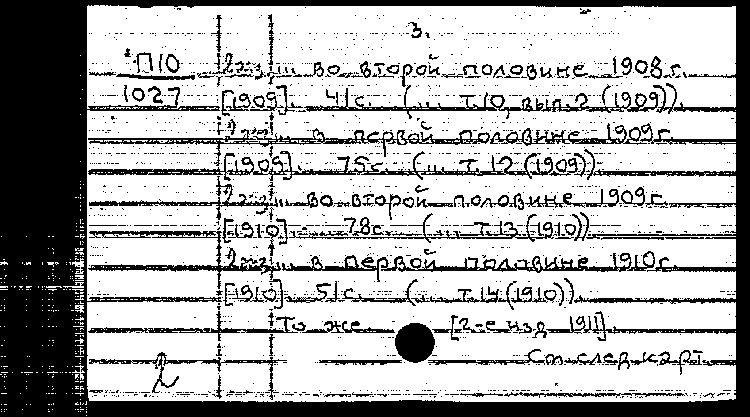 3.
П10 2 экз. ... во второй половине 1908 г.
1027 [1909]. 41 с. (... т. 10, вып. 2 (1909)).
2 экз. ... в первой половине 1909 г.
[1909]. 75 с. (... т. 12 (1909))
2 экз. ... во второй половине 1909 г.
[1910] - 78 с. (... т. 13 (1910))
2 экз. ... в первой половине 1910 г.
[1910]. 51 с. (... т. 14 (1910)).
То же. [2-е изд. 1911].
См. след. карт.
2